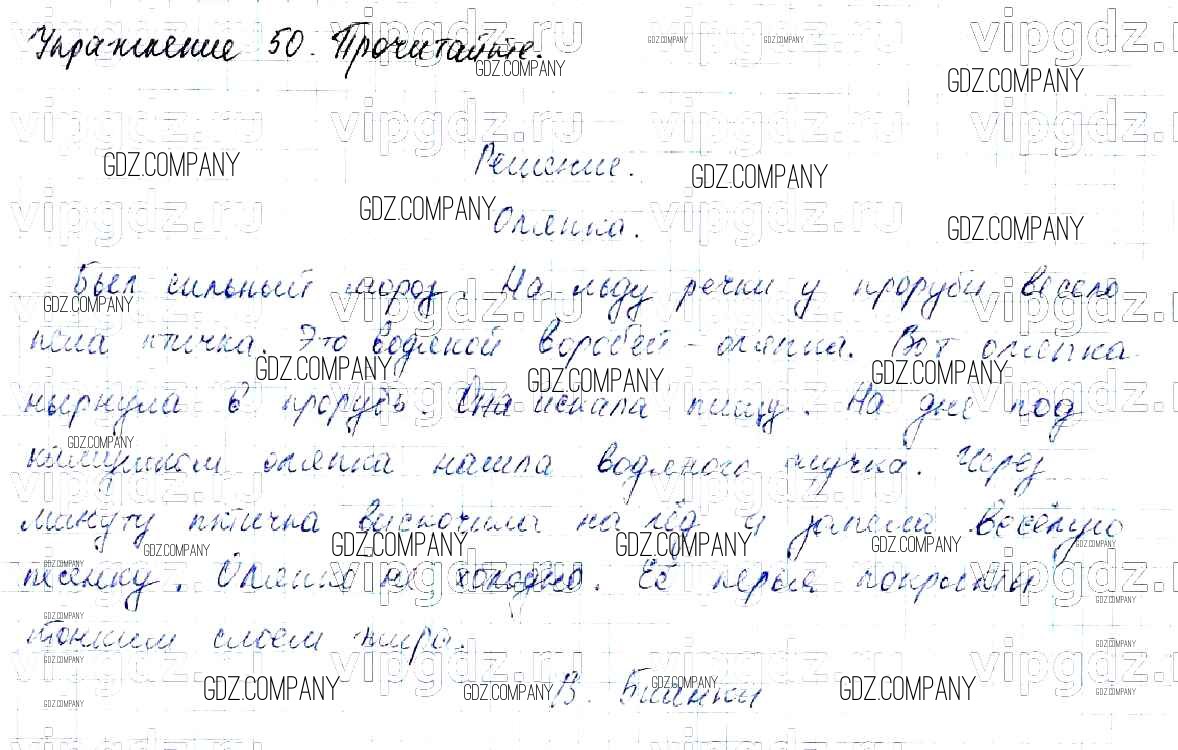 Упражнение 50. Прочитайте.
Решение.
Оляпка.
Был сильный мороз. На льду речки у проруби весело
пела птичка. Это водяной воробей - оляпка. Вот оляпка
нырнула в прорубь. Она искала пищу. На дне под
камушком оляпка нашла водяного жучка. Через
минуту птичка выскочила на лёд и запела весёлую
песенку. Оляпке не холодно. Её перья покрыты
тонким слоем жира.
В. Бианки
vipgdz.ru
GDZ.COMPANY